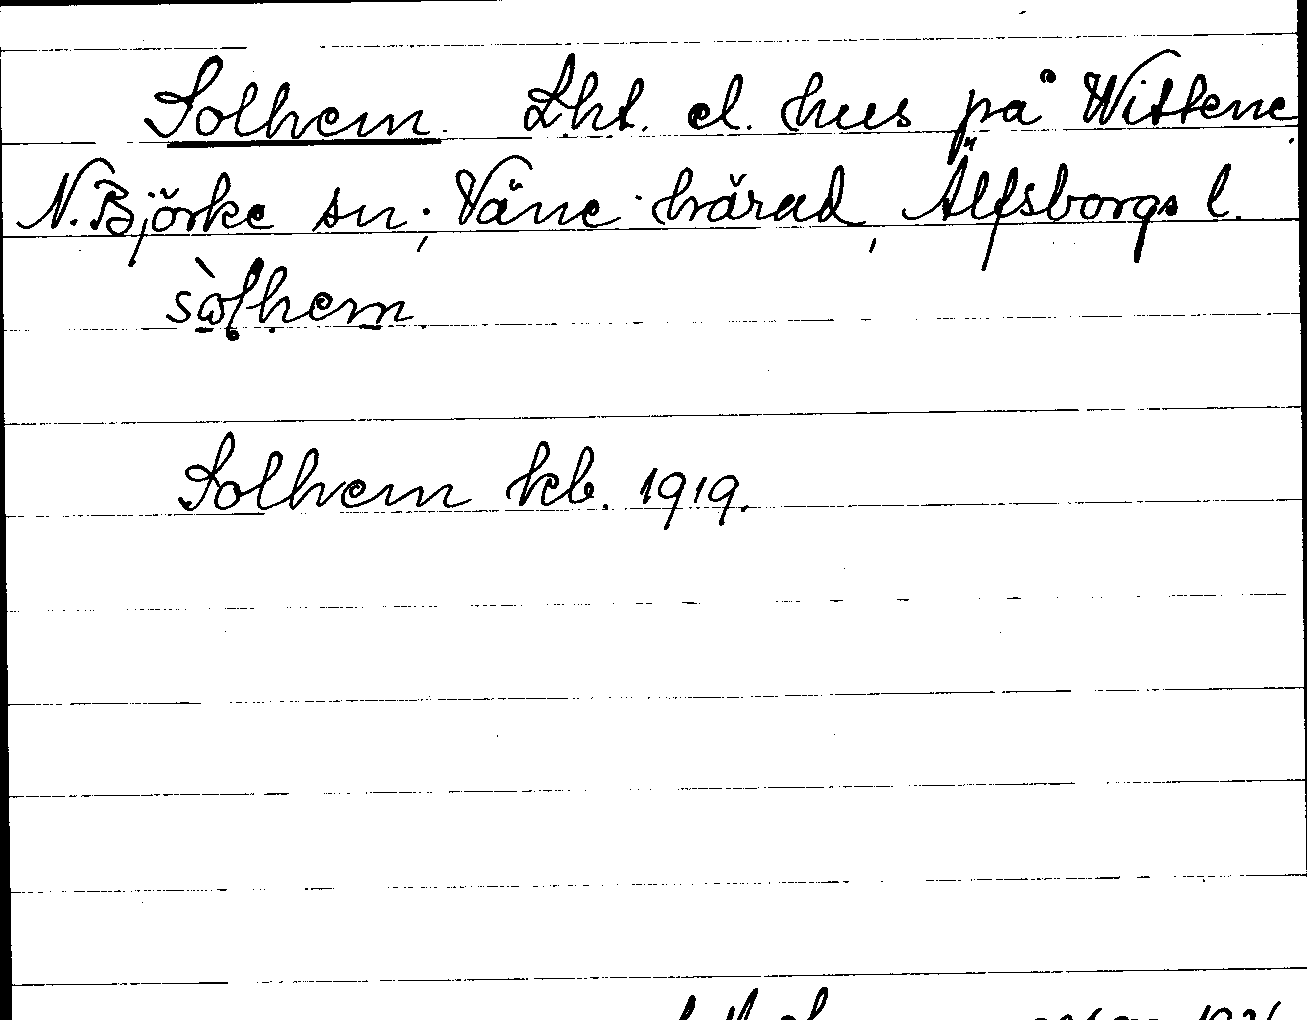 Solhem. Lht. el. hus på Wittene.
N. Björke sn; Väne härad, Älfsborgs l.
sòlhem.
Solhem kb. 1919.